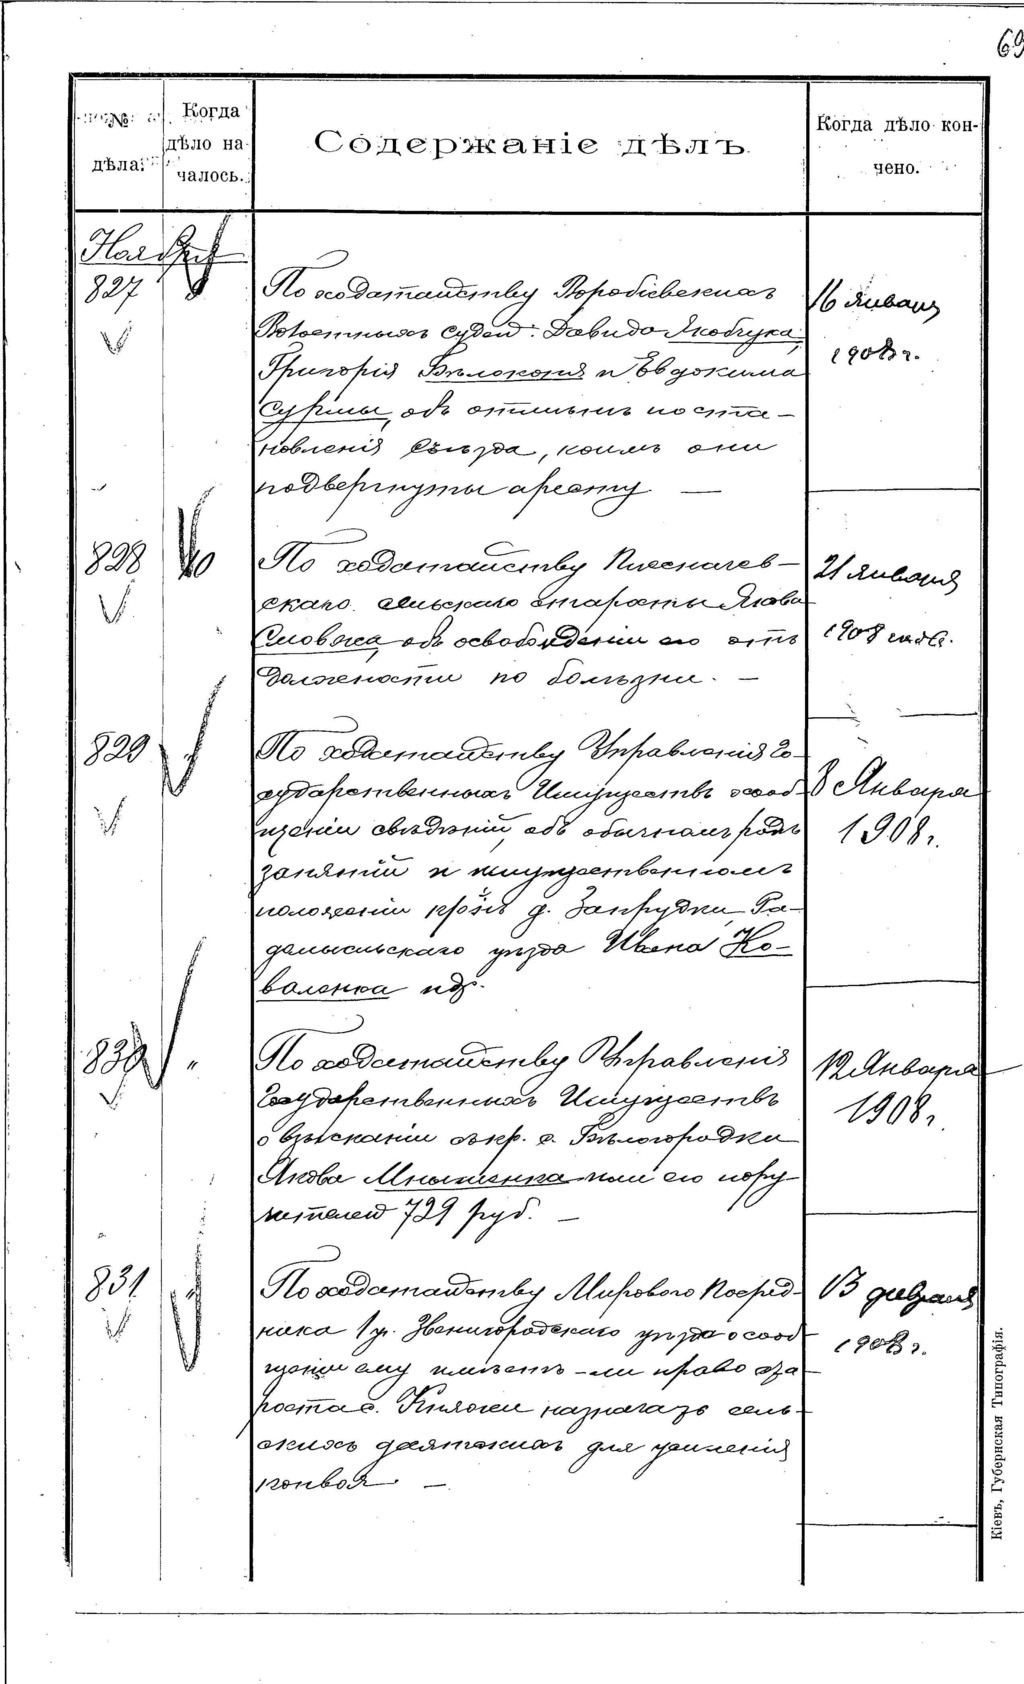 69
№ дѣла.
Когда дѣло началось.
Содержаніе дѣлъ.
Когда дѣло кончено.
Ноября
827
8
По ходатайству Воробіевскихъ
Волостныхъ судей: Давида Якобчука,
Григорія Бѣлоконя и Евдокима
Сурмы, объ отмѣнѣ поста-
новленія Съѣзда, коимъ они
подвергнуты аресту —
16 Января
1908 г.
828
10
По ходатайству Плесначев-
скаго сельскаго старосты Якова
Словьяка, объ освобожденіи его отъ
должности по болѣзни. —
21 Января
1908 года.
829
По ходатайству Управленія Го-
сударственныхъ Имуществъ о сооб-
щеніи свѣдѣній, объ обычномъ родѣ
занятій и имущественномъ
положеніи кр-нъ д. Запрудки, Ра-
домысльскаго уѣзда Ивана Ко-
валенка и др.
8 Января
1908 г.
830
"
По ходатайству Управленія
Государственныхъ Имуществъ
о взысканіи съ кр. с. Бѣлогородки
Якова или его пору-
чителей 729 руб. —
12 Января
1908 г.
831
По ходатайству Мирового Посред-
ника 1 у. Звенигородскаго уѣзда о сооб-
щеніи ему имѣетъ-ли право ста-
роста с. Княжеи назначать сель-
скихъ десятскихъ для усиленія
конвоя —
13 февраля
1908 г.
Кіевъ, Губернская Типографія.